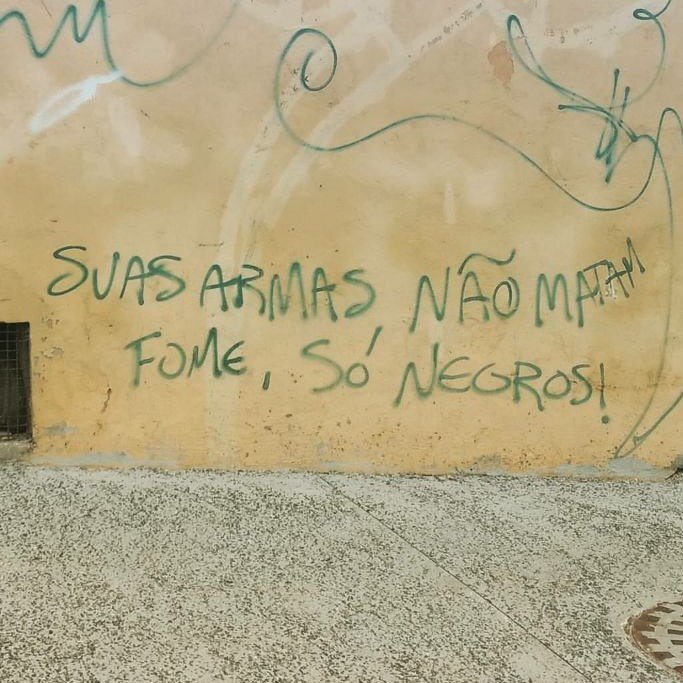 SUAS ARMAS NÃO MATAM
FOME, SÓ NEGROS!